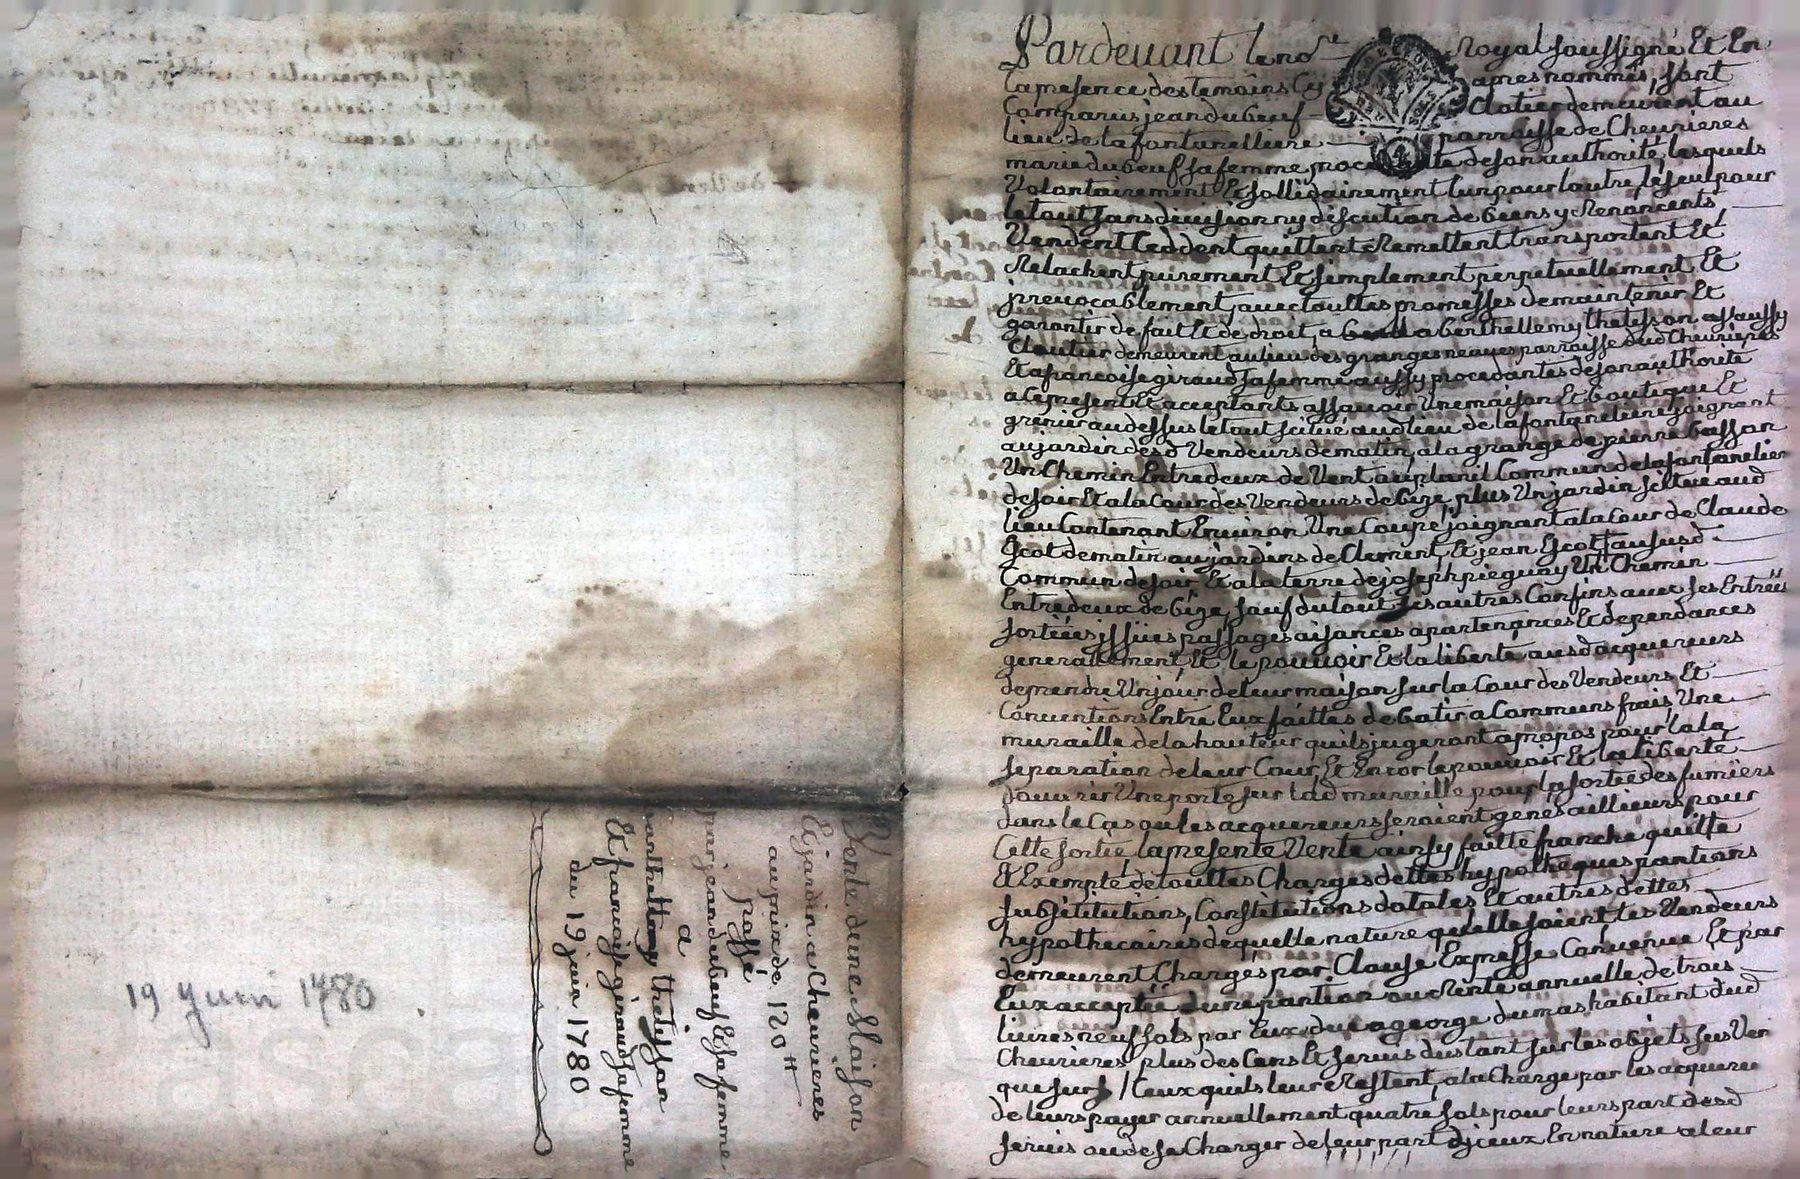 Vente dune Maison
Et jardin a Cheurieres
au prix de 120 ₶
passé
par jean dubeuf Et sa femme
a
barthellemy thetisson
Et francoise giraud sa femme
du 19 juin 1780
19 juin 1780
Pardevant le no.re Royal soussigné Et En
la presence des temoins Cy apres nommés, sont
Comparus jean dubeuf Clatier demeurent au
lieu de la fontanelliere parroisse de Cheurieres
marie dubeuf sa femme, proce de son authorité, lesquels
Volontairement Et sollidairement lun pour lautre, le seul pour
le tout sans deuision ny discution de biens y Renoncents,
Vendent Ceddent quittent Remettent transportent Et
Relachent purement Et simplement perpetuellement Et
jrreuocablement, auec touttes promesses de maintenir Et
garantir de fait Et de droit, a barthellemy thetisson aussy
Cloutier demeurent au lieu des granges neaues parroisse dud Cheurieres
Et a francoise giraud sa femme aussy procedantes de son authorité
a Ce present Et acceptants assauoir Une maison Et boutique Et
grenier au dessus le tout scitué aud lieu de la fontaneliere joignant
au jardin desd Vendeurs de matin, a la grange de pierre basson
Un Chemin Entredeux de Vent au planil Commun de la fontanelier
de soir Et a la Cour des Vendeurs de bize, plus Un jardin scitué aud
lieu Contenant Enuiron Une Coupe joignant a la Cour de Claude
Escot de matin au jardins de Clement, Et jean Escot sausud
Commun de soir Et a la terre de joseph pieguay Un Chemin
Entredeux de bize, sauf du tout ses autres Confins auec ses Entrées
sorties jssües passages aisances apartenances Et dependances
generallement, Et le pouuoir Et la liberté ausd acquereurs
de prendre Un jour de leur maison sur la Cour des Vendeurs, Et
Conuentions Entre Eux faittes de batir a Communs frais, Une
muraille de la hauteur quils jugeront a propos pour la la
separation de leur Cour, Et Encor le pouuoir Et la liberté
douurir Une porte sur lad muraille pour la sortie des fumiers
dans le Cas ou les acquereurs seroient genés aillieurs pour
Cette sortie, la presente Vente ainsy faitte franche quitte
Et Exempte de touttes Charges dettes hypotheques pantions
substitutions, Constitutions dotales Et autres dettes
hypothecaires de quelle nature quelle soient les Vendeurs
demeurent Chargés par Clause Expresse Conuenue Et par
Eux acceptée dune pantion ou Rente annuelle de trois
liures neuf sols par Eux due a george dumas habitant dud
Cheurieres, plus des Cens Et seruis dus tant sur les objets sus Ven
que sur / Ceux quils leur Restent, a la Charge par les acquere
de leurs payer annuellement quatre sols pour leurs part desd
seruis ou de se Charger de leur part djceux En nature a leur